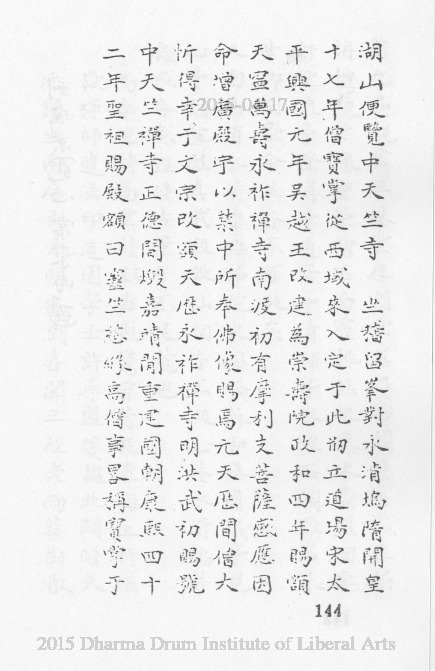 湖山便覽中天竺寺 坐稽留峯對永清塢隋開皇
十七年僧寶掌從西域來入定于此刱立道場宋太
平興國元年吳越王改建為崇壽院政和四年賜額
天寧萬壽永祚禪寺南渡初有摩利支菩薩感應因
命增廣殿宇以禁中所奉佛像賜焉元天厯間僧大
忻得幸于文宗改額天厯永祚禪寺明洪武初賜號
中天竺禪寺正德間燬嘉靖間重建國朝康熙四十
二年聖祖賜殿額曰靈竺慈緣高僧事畧稱寶掌于
144
2015 Dharma Drum Institute of Liberal Arts